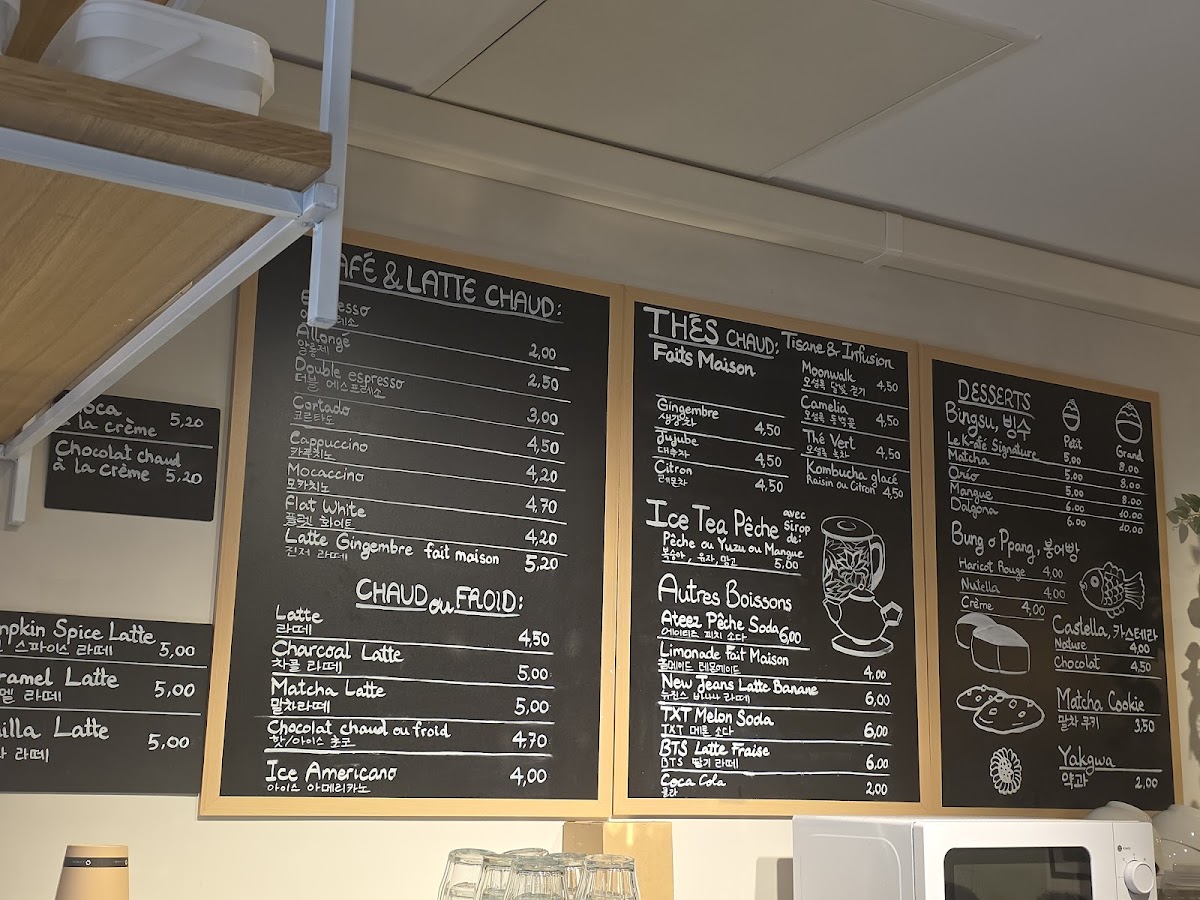 à la crème 5,20
Chocolat chaud
à la crème 5,20
Spice Latte 5,00
스파이스 라떼
Latte 5,00
라떼
Latte 5,00
라떼
& LATTE CHAUD:
Allongé 2,00
알롱제
Double espresso 2,50
더블 에스프레소
Cortado 3,00
코르타도
Cappuccino 4,50
카푸치노
Mocaccino 4,20
모카치노
Flat White 4,70
플랫 화이트 4,20
Latte Gingembre fait maison 5,20
진저 라떼
CHAUD ou FROID:
Latte 4,50
라떼
Charcoal Latte 5,00
차콜 라떼
Matcha Latte 5,00
말차라떼
Chocolat chaud ou froid 4,70
핫/아이스 초코
Ice Americano 4,00
아이스 아메리카노
THÉS CHAUD:
Faits Maison
Gingembre 4,50
생강차
Jujube 4,50
대추차
Citron 4,50
레몬차
Tisane & Infusion
Moonwalk 4,50
오설록 달빛 걷기
Camelia 4,50
오설록 동백꽃
Thé Vert 4,50
오설록 녹차
Kombucha glacé
Raisin ou Citron 4,50
Ice Tea Pêche avec Sirop de:
Pêche ou Yuzu ou Mangue
복숭아, 유자, 망고 5,00
Autres Boissons
Ateez Pêche Soda 6,00
에이티즈 피치 소다
Limonade fait Maison
홈메이드 레몬에이드 4,00
New Jeans Latte Banane
뉴진스 바나나 라떼 6,00
TXT Melon Soda
TXT 메론 소다 6,00
BTS Latte Fraise
BTS 딸기 라떼 6,00
Coca Cola
콜라 2,00
DESSERTS
Bingsu, 빙수 Petit Grand
Le K-afé Signature 5,00 8,00
Matcha 5,00 8,00
Oréo 5,00 8,00
Mangue 6,00 10,00
Dalgona 6,00 10,00
Bung o Ppang, 붕어빵
Haricot Rouge 4,00
Nutella 4,00
Crème 4,00
Castella, 카스테라
Nature 4,00
Chocolat 4,50
Matcha Cookie
말차 쿠키 3,50
Yakgwa
약과 2,00